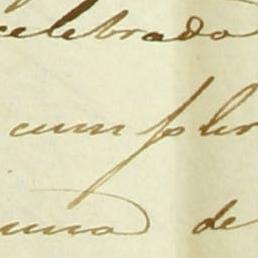 celebrado
cumplir
una de